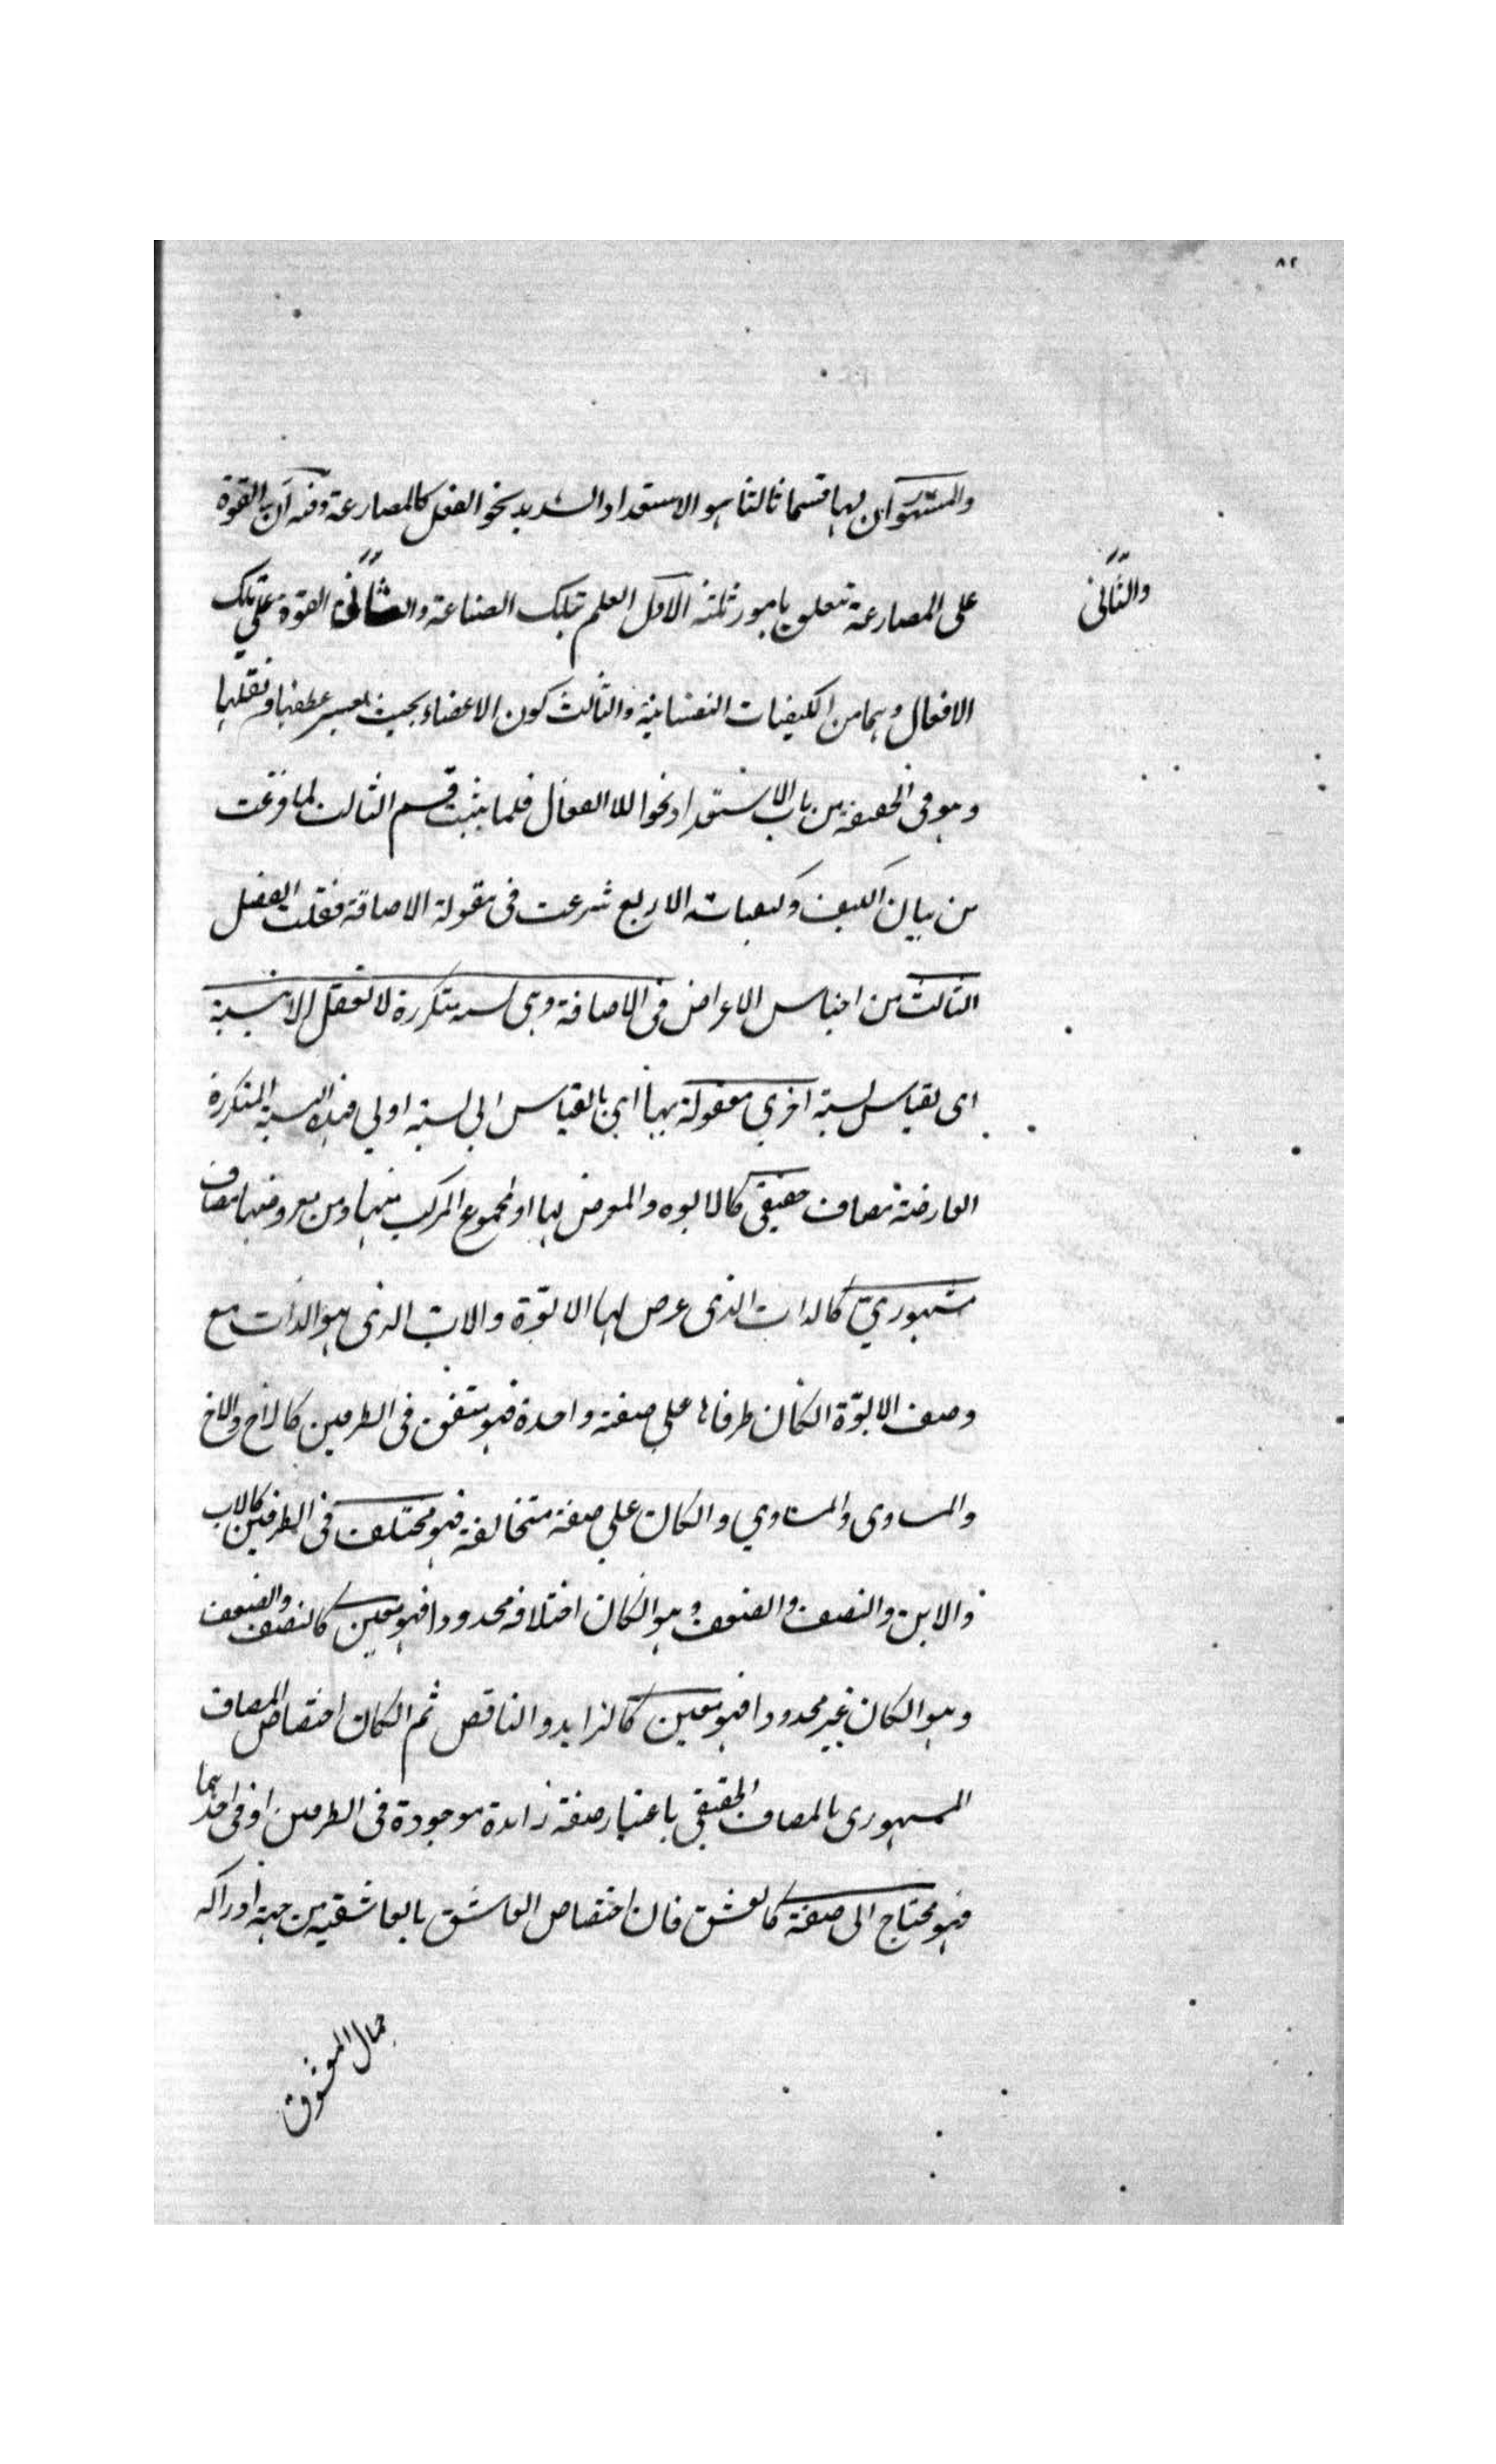 ٨٢
والمشهور ان لها قسما ثالثا هو الاستعداد الشديد نحو الفعل كالمصارعة وفيه ان القوة
على المصارعة تتعلق بامور ثلثة الاول العلم بتلك الصناعة والثاني القوة على تلك
والثاني
الافعال وهما من الكيفيات النفسانية والثالث كون الاعضاء بحيث يعسر عطفها ونقلها
وهو في الحقيقة من باب الاستعداد نحو اللاانفعال فلما يثبت قسم الثالث لما فرغت
من بيان الكيف وكيفياته الاربع شرعت في مقولة الاضافة فقلت الفصل
الثالث من اجناس الاعراض في الاضافة وهي نسبة متكررة لا تعقل الا بنسبة
اي بقياس نسبة اخري معقولة بها اي بالقياس الي نسبة اولي فهذه النسبة المتكررة
العارضة مضاف حقيقي كالابوه والمعروض لها او المجموع المركب منها ومن معروضها مضاف
مشهوري كالذات الذي عرض لها الابوّة والاب الذي هو الذات مع
وصف الابوّة انكان طرفاها علي صفة واحدة فهو متفق في الطرفين كالاخ والاخ
والمساوى والمساوي وانكان علي صفة متخالفة فهو مختلف في الطرفين كالاب
والابن والنصف والضعف وهو انكان اختلافه محدودا فهو معين كالنصف والضعف
وهو انكان غير محدود فهو معين كالزايد والناقص ثم انكان اختصاص المضاف
المشهورى بالمضاف الحقيقي باعتبار صفة زايدة موجودة في الطرفين او في احدهما
فهو محتاج الى صفة كالعشق فان اختصاص العاشق بالعاشقية من جهة ادراكه
جمال المعشوق